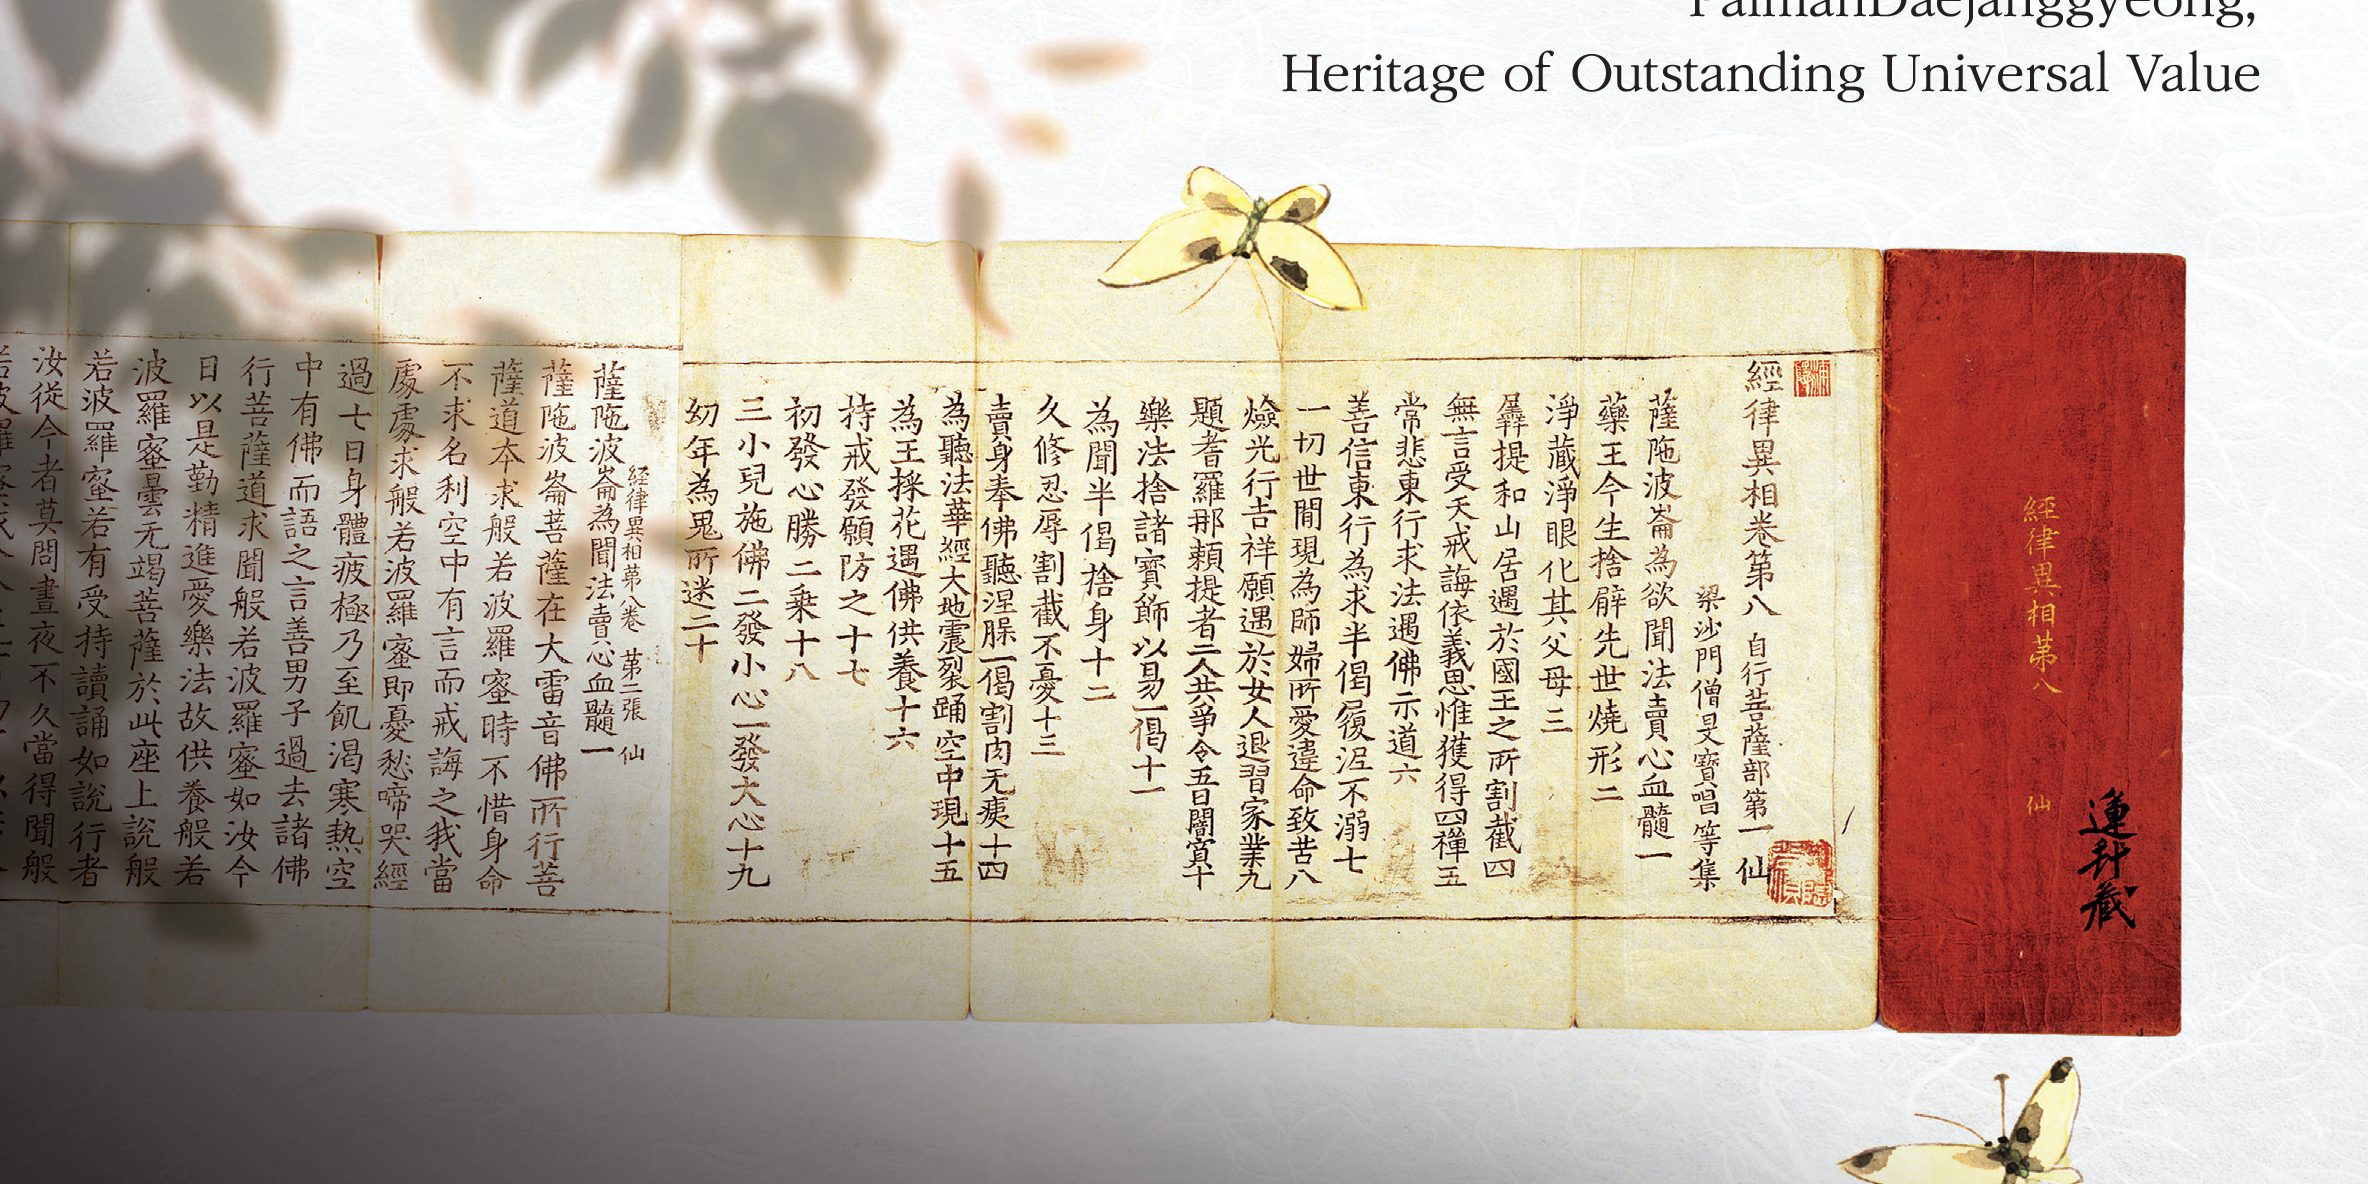 PalmanDaejanggyeong,
Heritage of Outstanding Universal Value
經律異相苐八 仙
蓮科藏
經律異相卷第八 自行菩薩部第一 仙
梁沙門僧旻寶唱等集
薩陁波崙為欲聞法賣心血髓一
藥王今生捨臂先世燒形二
淨藏淨眼化其父母三
羼提和山居遇於國王之所割截四
無言受天戒誨依義思惟獲得四禪五
常悲東行求法遇佛示道六
善信東行為求半偈履泥不溺七
一切世間現為師婦所愛違命致苦八
燄光行吉祥願遇於女人退習家業九
題耆羅那賴提者二人共爭令五日闇𡨋十
樂法捨諸寶飾以易一偈十一
為聞半偈捨身十二
久修忍辱割截不憂十三
賣身奉佛聽涅槃一偈割肉无痍十四
為聽法華經大地震裂踊空中現十五
為王採花遇佛供養十六
持戒發願防之十七
初發心勝二乘十八
三小兒施佛二發小心一發大心十九
幼年為鬼所迷二十
經律異相苐八卷 苐二張 仙
薩陁波崙為聞法賣心血髓一
薩陁波崙菩薩在大雷音佛所行菩
薩道本求般若波羅蜜時不惜身命
不求名利空中有言而戒誨之我當
處處求般若波羅蜜即憂愁啼哭經
過七日身體疲極乃至飢渴寒熱空
中有佛而語之言善男子過去諸佛
行菩薩道求聞般若波羅蜜如汝今
日以是勤精進愛樂法故供養般若
波羅蜜曇无竭菩薩於此座上說般
若波羅蜜若有受持讀誦如說行者
汝從今者莫問晝夜不久當得聞般